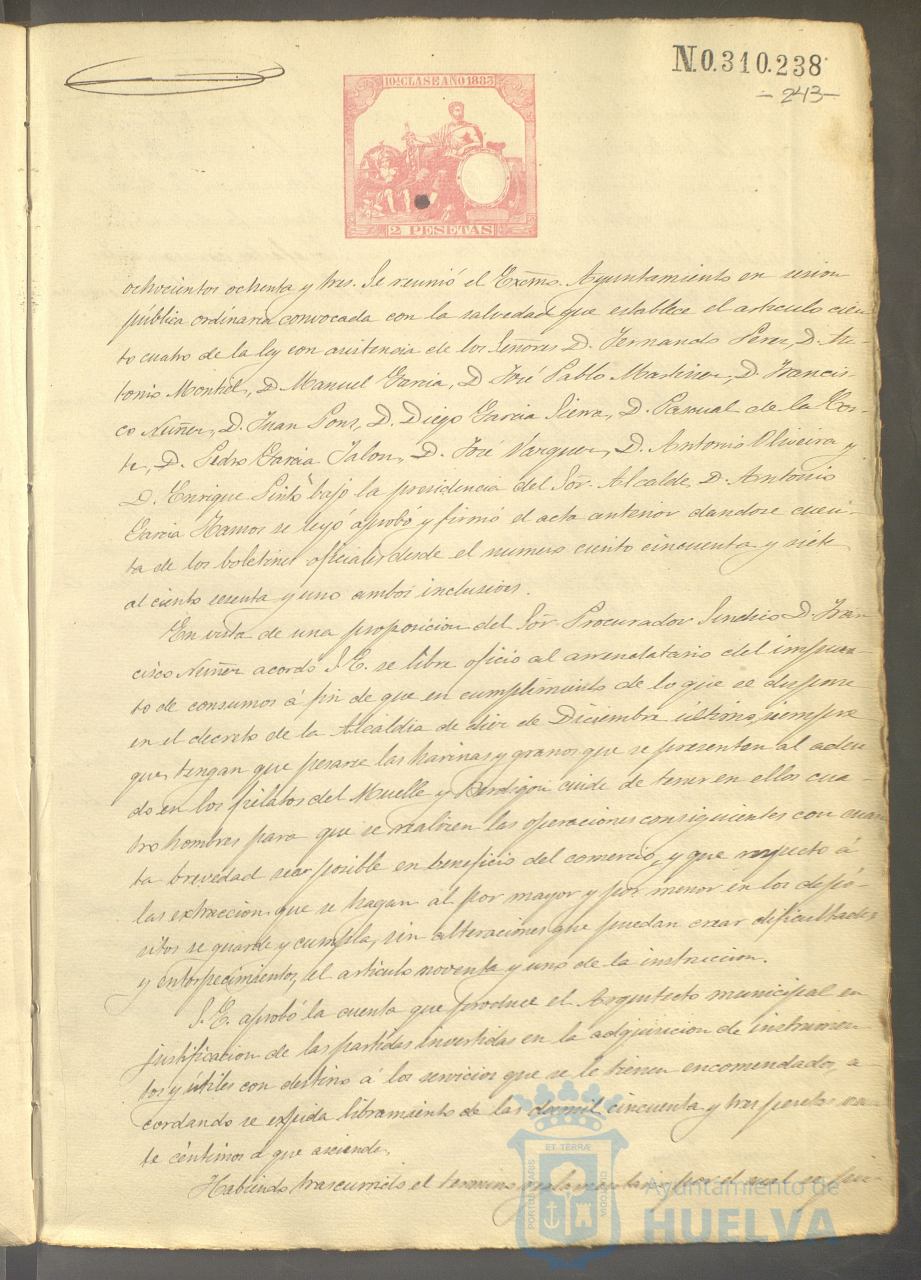 N.0.310.238
-243-
10ª CLASE AÑO 1883
2 PESETAS
ochocientos ochenta y tres. Se reunió el Excmo. Ayuntamiento en sesion
pública ordinaria convocada con la salvedad que establece el articulo cien-
to cuatro de la ley con asistencia de los Señores D. Fernando Perez, D. An-
tonio Montiel, D. Manuel Garcia, D. José Pablo Martinez, D. Francis-
co Nuñez, D. Juan Pons, D. Diego Garcia Sierra, D. Pascual de la Cor-
te, D. Pedro Garcia Jalon, D. José Vazquez, D. Antonio Oliveira y
D. Enrique Pinto bajo la presidencia del Sor. Alcalde D. Antonio
Garcia Ramos se leyó aprobó y firmó el acta anterior dandose cuen-
ta de los boletines oficiales desde el numero ciento cincuenta y siete
al ciento sesenta y uno ambos inclusives.
En vista de una proposicion del Sor. Procurador Sindico D. Fran
cisco Nuñez acordó S.E. se libre oficio al arrendatario del impues-
to de consumos á fin de que en cumplimiento de lo que se dispone
en el decreto de la Alcaldia de diez de Diciembre último, siempre
que tengan que pesarse las harinas y granos que se presenten al adeu
do en los fielatos del Muelle y Perdigon cuide de tener en ellos cua-
tro hombres para que se realicen las operaciones consiguientes con cuan
ta brevedad sea posible en beneficio del comercio, y que respecto á
las extraccion que se hagan al por mayor y por menor en los depó-
sitos se guarde y cumpla, sin alteraciones que puedan crear dificultades
y entorpecimientos, el articulo noventa y uno de la instruccion.
S.E. aprobó la cuenta que produce el Arquitecto municipal en
justificacion de las partidas invertidas en la adquisicion de instrumen
tos y útiles con destino á los servicios que se le tienen encomendados, a-
cordando se expida libramiento de las dosmil cincuenta y tres pesetas vein
te céntimos á que asciende.
Habiendo trascurrido el termino reglamentario por el cual se
ET TERRÆ
PORTUS MARIS
CUSTODIA
Ayuntamiento de
HUELVA